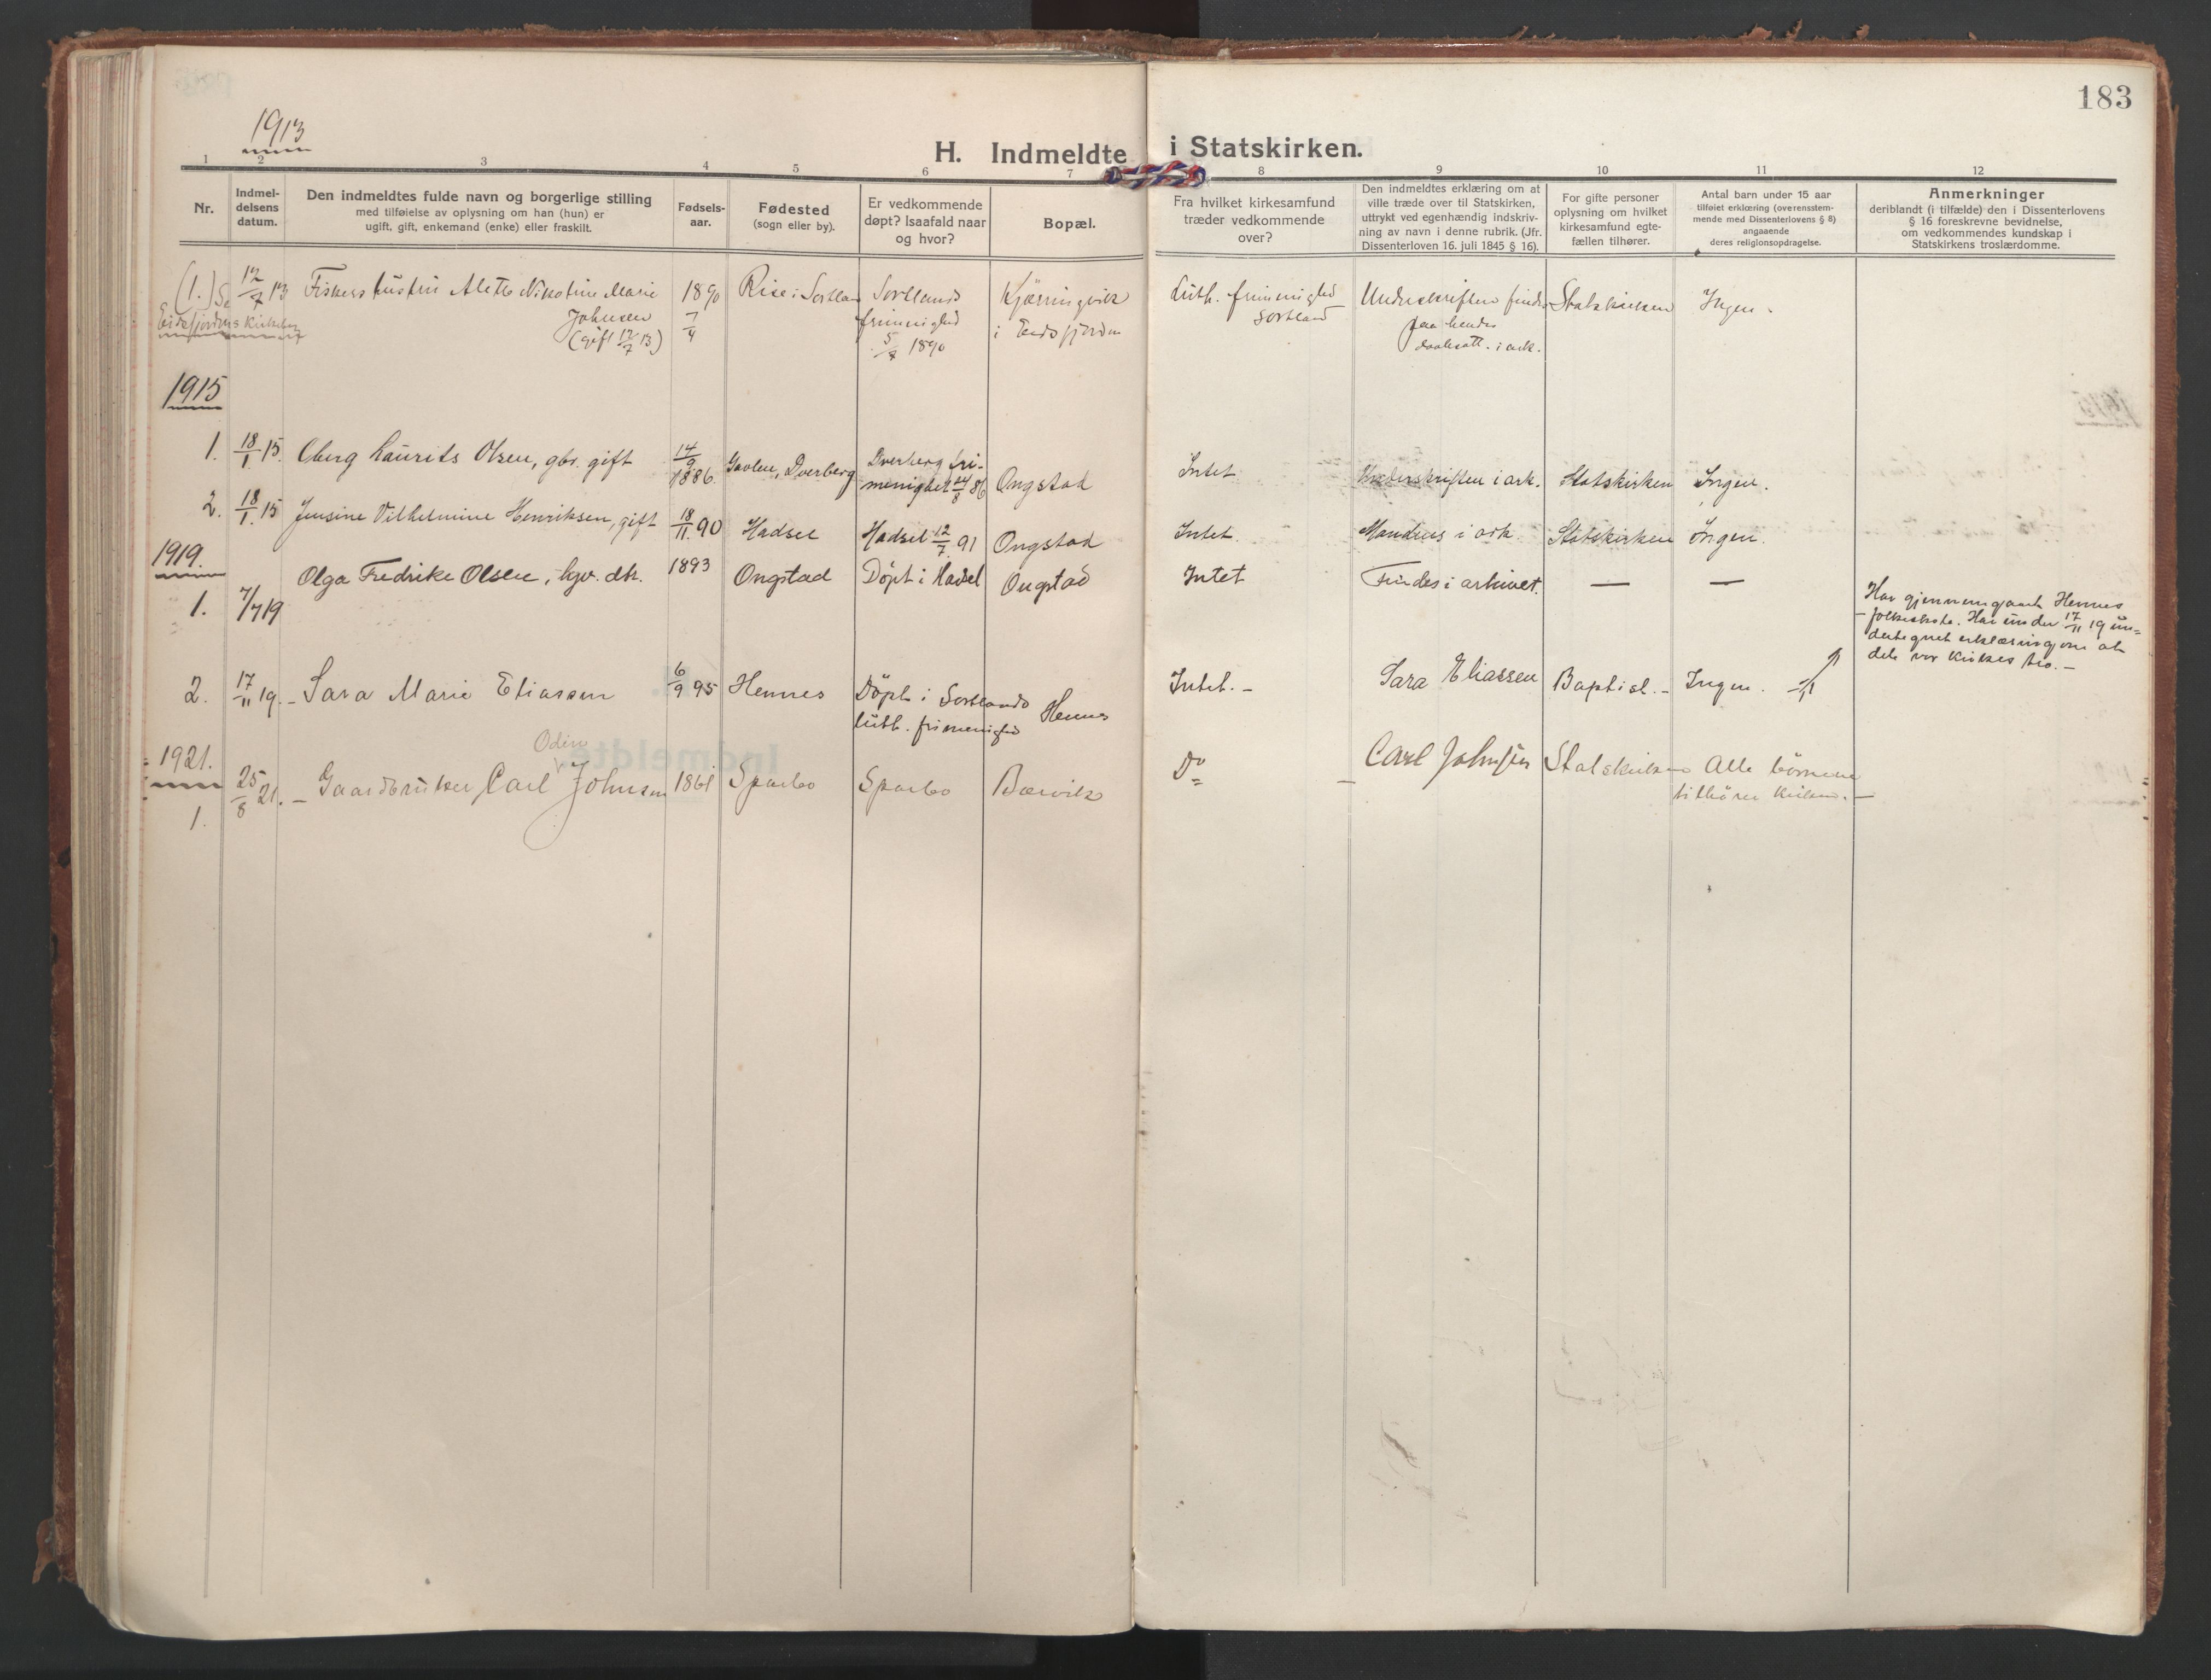 183
1913
H. Indmeldte i Statskirken.
1 2 3 4 5 6 7 8 9 10 11 12
Nr.
Indmel-
delsens
datum.
Den indmeldtes fulde navn og borgerlige stilling
med tilføielse av oplysning om han (hun) er
ugift, gift, enkemand (enke) eller fraskilt.
Fødsels-
aar.
Fødested
(sogn eller by).
Er vedkommende
døpt? Isaafald naar
og hvor?
Bopæl.
Fra hvilket kirkesamfund
træder vedkommende
over?
Den indmeldtes erklæring om at
ville træde over til Statskirken,
uttrykt ved egenhændig indskriv-
ning av navn i denne rubrik. (Jfr.
Dissenterloven 16. juli 1845 § 16).
For gifte personer
oplysning om hvilket
kirkesamfund egte-
fællen tilhører.
Antal barn under 15 aar
tilføiet erklæring (overensstem-
mende med Dissenterlovens § 8)
angaaende
deres religionsopdragelse.
Anmerkninger
deriblandt (i tilfælde) den i Dissenterlovens
§ 16 foreskrevne bevidnelse,
om vedkommendes kundskap i
Statskirkens troslærdomme.
(1.) Se
Eidsfjordens Kirkebog
12/7 13
Fiskers hustru Alette Nikoline Marie
Johnsen
(gift 12/7 13)
1890
7/4
Rise i Sortland
Sortlands
frimenighed
5/7 1890
Kjærringvik
i Eidsfjorden
Luth. frimenighed
Sortland
Underskriften findes
paa hendes
i ark.
Statskirken
Ingen.
1915
1. 18/1 15. Oberg Laurits Olsen, gbr. gift
14/9
1886.
Gavlen, Dverberg
Dverberg fri-
menighet 24/8 86
Ongstad
Intet
Underskriften i ark.
Statskirken
Ingen.
2. 18/1 15 Jensine Vilhelmine Henriksen, gift
18/11 90
Hadsel
Hadsel 12/7 91
Ongstad
Intet.
Mandens i ark.
Statskirken
Ingen.
1919.
1. 7/7 19
Olga Fredrike Olsen, gbr. dtr.
1893
Ongstad
Döpt i Hadsel
Ongstad
Intet
Findes i arkivet.
—
—
Har gjennemgaaet Hennes
folkeskole. Har under 17/11 19 un=
dertegnet erklæringen om at
dele vor kirkes tro. —
2. 17/11 19. – Sara Marie Eliassen
6/9 95
Hennes
Döpt i Sortlands
luth. frimenighed
Hennes
Intet. –
Sara Eliassen
Baptist. –
Ingen.
1921.
1.
25/8 21. –
Odin
Gaardbruker Carl Johnsen
1861
Sparbo
Sparbo
Bervik
Do
Carl Johnsen
Statskirken
Alle börnene
tilhörer kirken. –